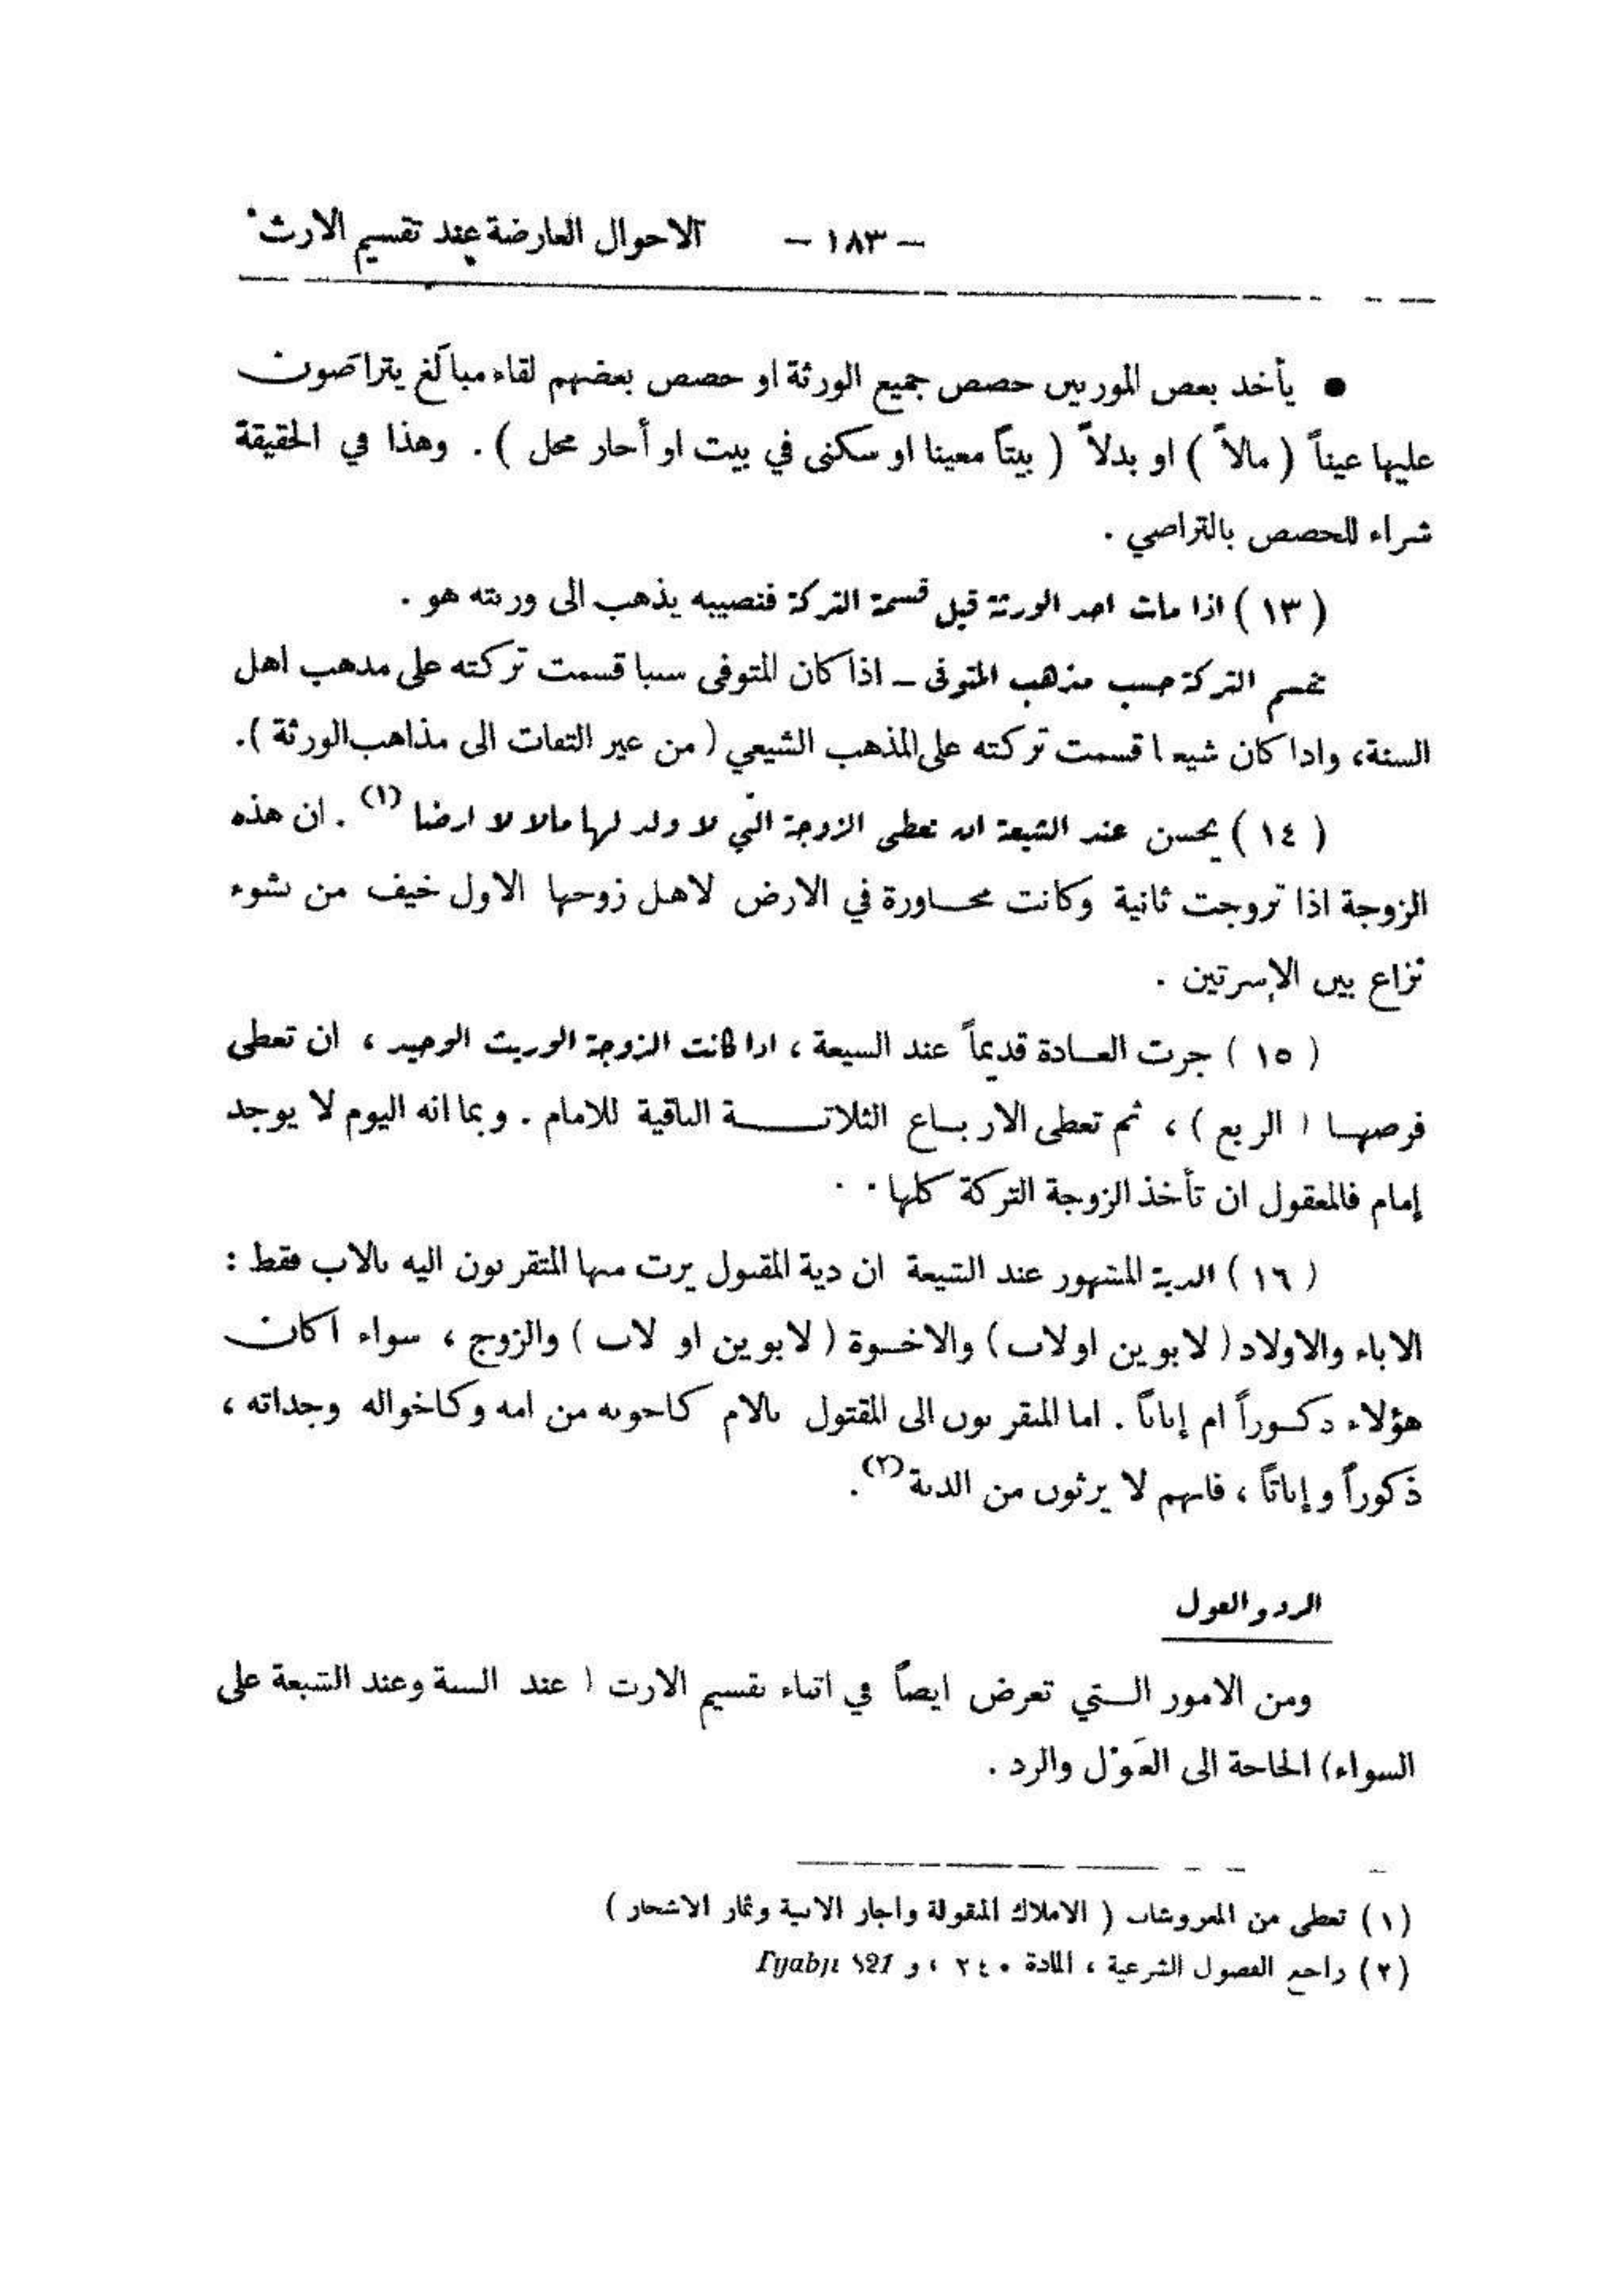 – ١٨٣ – الاحوال العارضة عند تقسيم الارث
● يأخذ بعض الموربين حصص جميع الورثة او حصص بعضهم لقاء مبالغ يتراضون
عليها عيناً ( مالاً ) او بدلاً ( بيتاً معينا او سكنى في بيت او أجار محل ) . وهذا في الحقيقة
شراء للحصص بالتراضي .
( ١٣ ) اذا مات احد الورثة قبل قسمة التركة فنصيبه يذهب الى ورثته هو .
تقسم التركة حسب مذهب المتوفى – اذا كان المتوفى سنيا قسمت تركته على مذهب اهل
السنة، واذا كان شيعيا قسمت تركته على المذهب الشيعي ( من غير التفات الى مذاهب الورثة ).
( ١٤ ) يحسن عند الشيعة ان تعطى الزوجة التي لا ولد لها مالا لا ارضا (١) . ان هذه
الزوجة اذا تزوجت ثانية وكانت مجـاورة في الارض لاهـل زوجها الاول خيف من نشوء
نزاع بين الاسرتين .
( ١٥ ) جرت العـادة قديماً عند الشيعة ، اذا كانت الزوجة الوريث الوحيد ، ان تعطى
فرضهـا ( الربع ) ، ثم تعطى الاربـاع الثلاثــة الباقية للامام . وبما انه اليوم لا يوجد
إمام فالمعقول ان تأخذ الزوجة التركة كلها . .
( ١٦ ) الدية المشهور عند الشيعة ان دية المقتول يرث منها المتقربون اليه بالاب فقط :
الاباء والاولاد ( لابوين او لاب ) والاخـوة ( لابوين او لاب ) والزوج ، سواء اكان
هؤلاء ذكـوراً ام إناثاً . اما المتقربون الى المقتول بالام كاخوته من امه وكاخواله وجداته ،
ذكوراً وإناثاً ، فانهم لا يرثون من الدية (٢) .
الرد والعول
ومن الامور الـتي تعرض ايضاً في اثناء تقسيم الارث ( عند السنة وعند الشيعة على
السواء) الحاجة الى العَوْل والرد .
(١) تعطى من المعروشات ( الاملاك المنقولة واجار الابنية وثمار الاشجار )
(٢) راجع الفصول الشرعية ، المادة ٢٤٠ ، و Tyabji 821